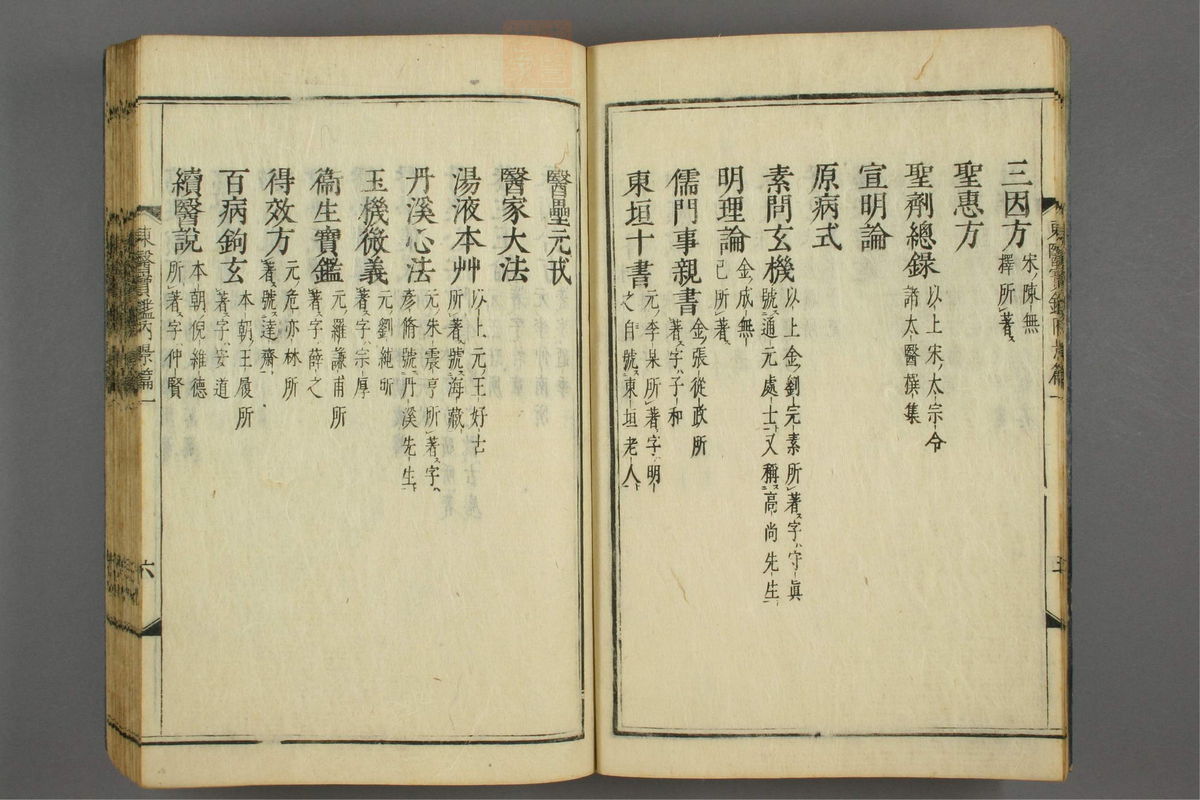 三因方 宋陳無
擇所著
聖惠方
聖劑總錄 以上宋太宗令
諸太醫撰集
宣明論
原病式
素問玄機 以上金劉完素所著字守眞
號通元處士又稱高尚先生
明理論 金成無
己所著
儒門事親書 金張從政所
著字子和
東垣十書 元李杲所著字明
之自號東垣老人
醫壘元戎
醫家大法
湯液本艸 以上元王好古
所著號海藏
丹溪心法 元朱震亨所著字
彦脩號丹溪先生
玉機微義 元劉純所
著字宗厚
衞生寶鑑 元羅謙甫所
著字薛之
得效方 元危亦林所
著號達齋
百病鉤玄 本朝王履所
著字安道
續醫說 本朝倪維德
所著字仲賢
東醫寶鑑內景篇一
六